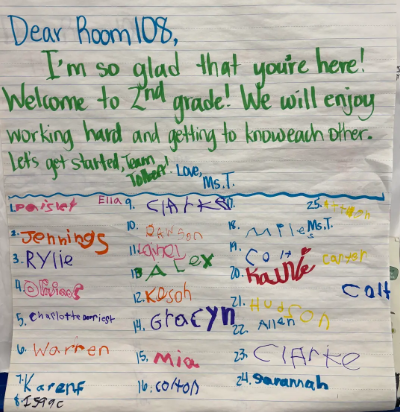 Dear Room 108,
I'm so glad that you're here!
Welcome to 2nd grade! We will enjoy
working hard and getting to know each other.
Let's get started, Team
Love,
Ms.T.
1. Paisley
Ella
9. Clarke
10.
25.
2. Jennings
10. Dawson
18. Miles
Ms.T.
3. Rylie
11. Laney
19. Colt
Carter
4.
13 Alex
20. Kallie
Colt
5. Charlotte
12. Kason
21. Hudson
14. Gracyn
22. Allen
6. Warren
15. Mia
23. Clarke
7. Karen
16. colton
24. Savannah
8. Isaac